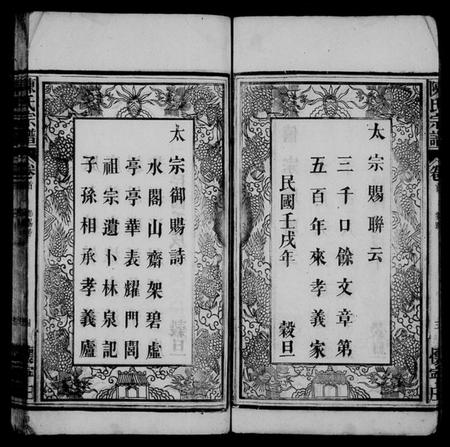 太宗賜聯云
三千口餘文章第
五百年來孝義家
民國壬戌年 穀旦
太宗御賜詩
水閣山齋架碧虛
亭亭華表耀門閭
祖宗遺卜林泉記
子孫相承孝義廬
陳氏宗譜
卷首
陳氏宗譜
卷首